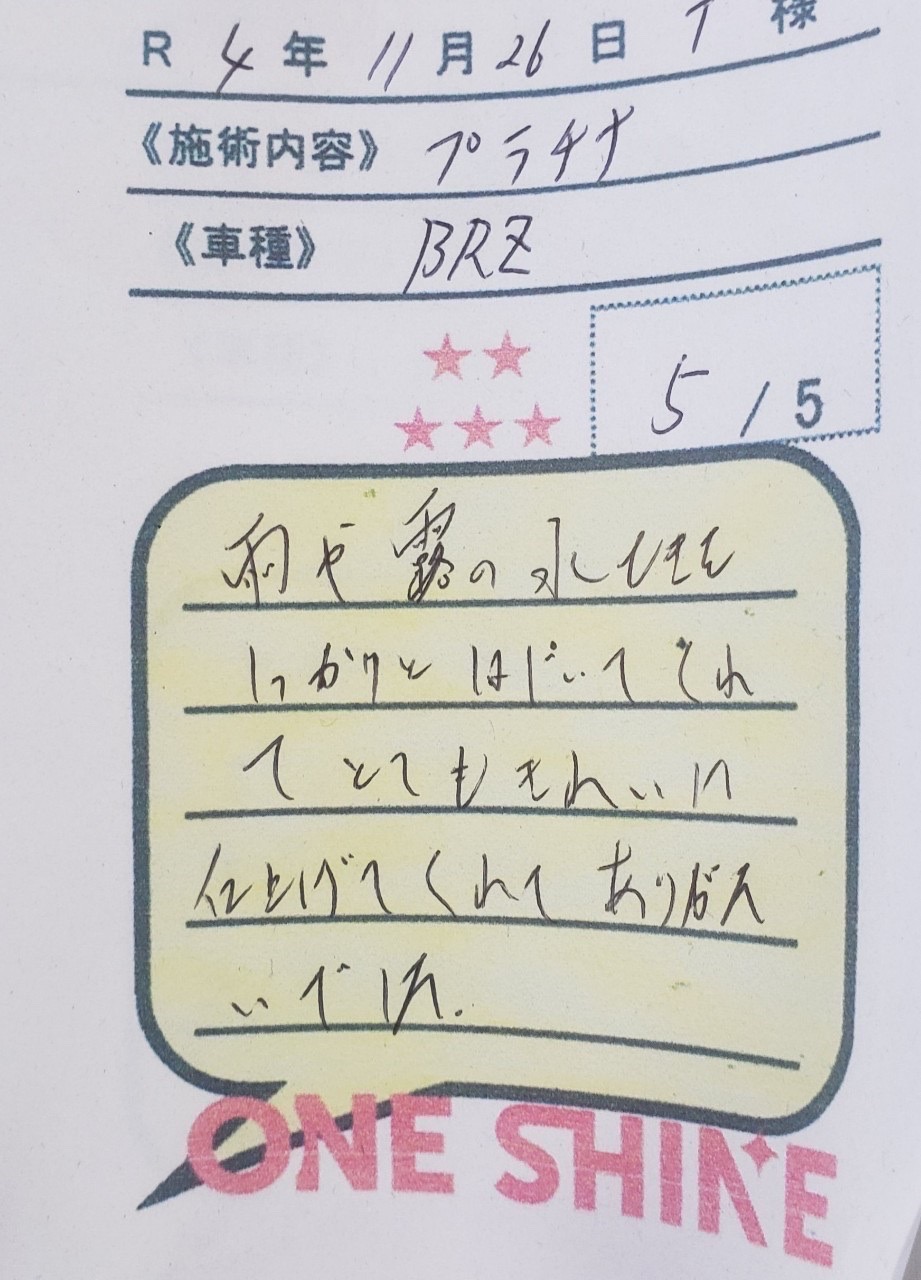 R 4年 11月 26日 T 様
《施術内容》 プラチナ
《車種》 BRZ
5 / 5
雨や霧の水
しっかりとはじいてくれ
てとてもきれいに
仕上げてくれてありがた
いでした.
ONE SHINE